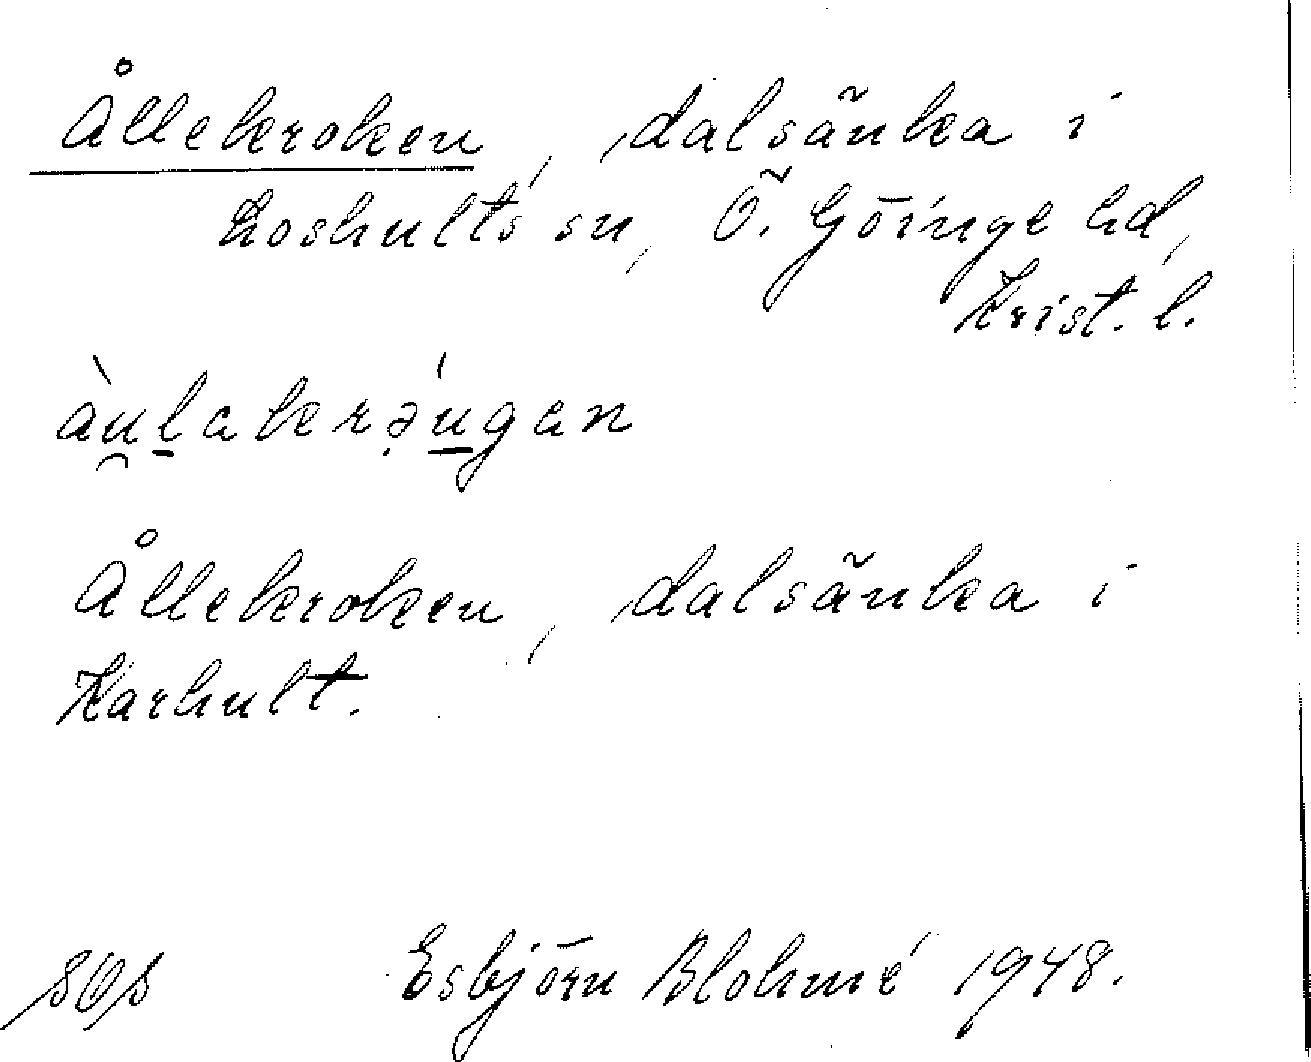 Ållekroken, dalsänka i
Loshults sn, Ö. Göinge hd,
Krist. l.
Ållekroken, dalsänka i
Karhult.
Esbjörn Blohmé 1948.